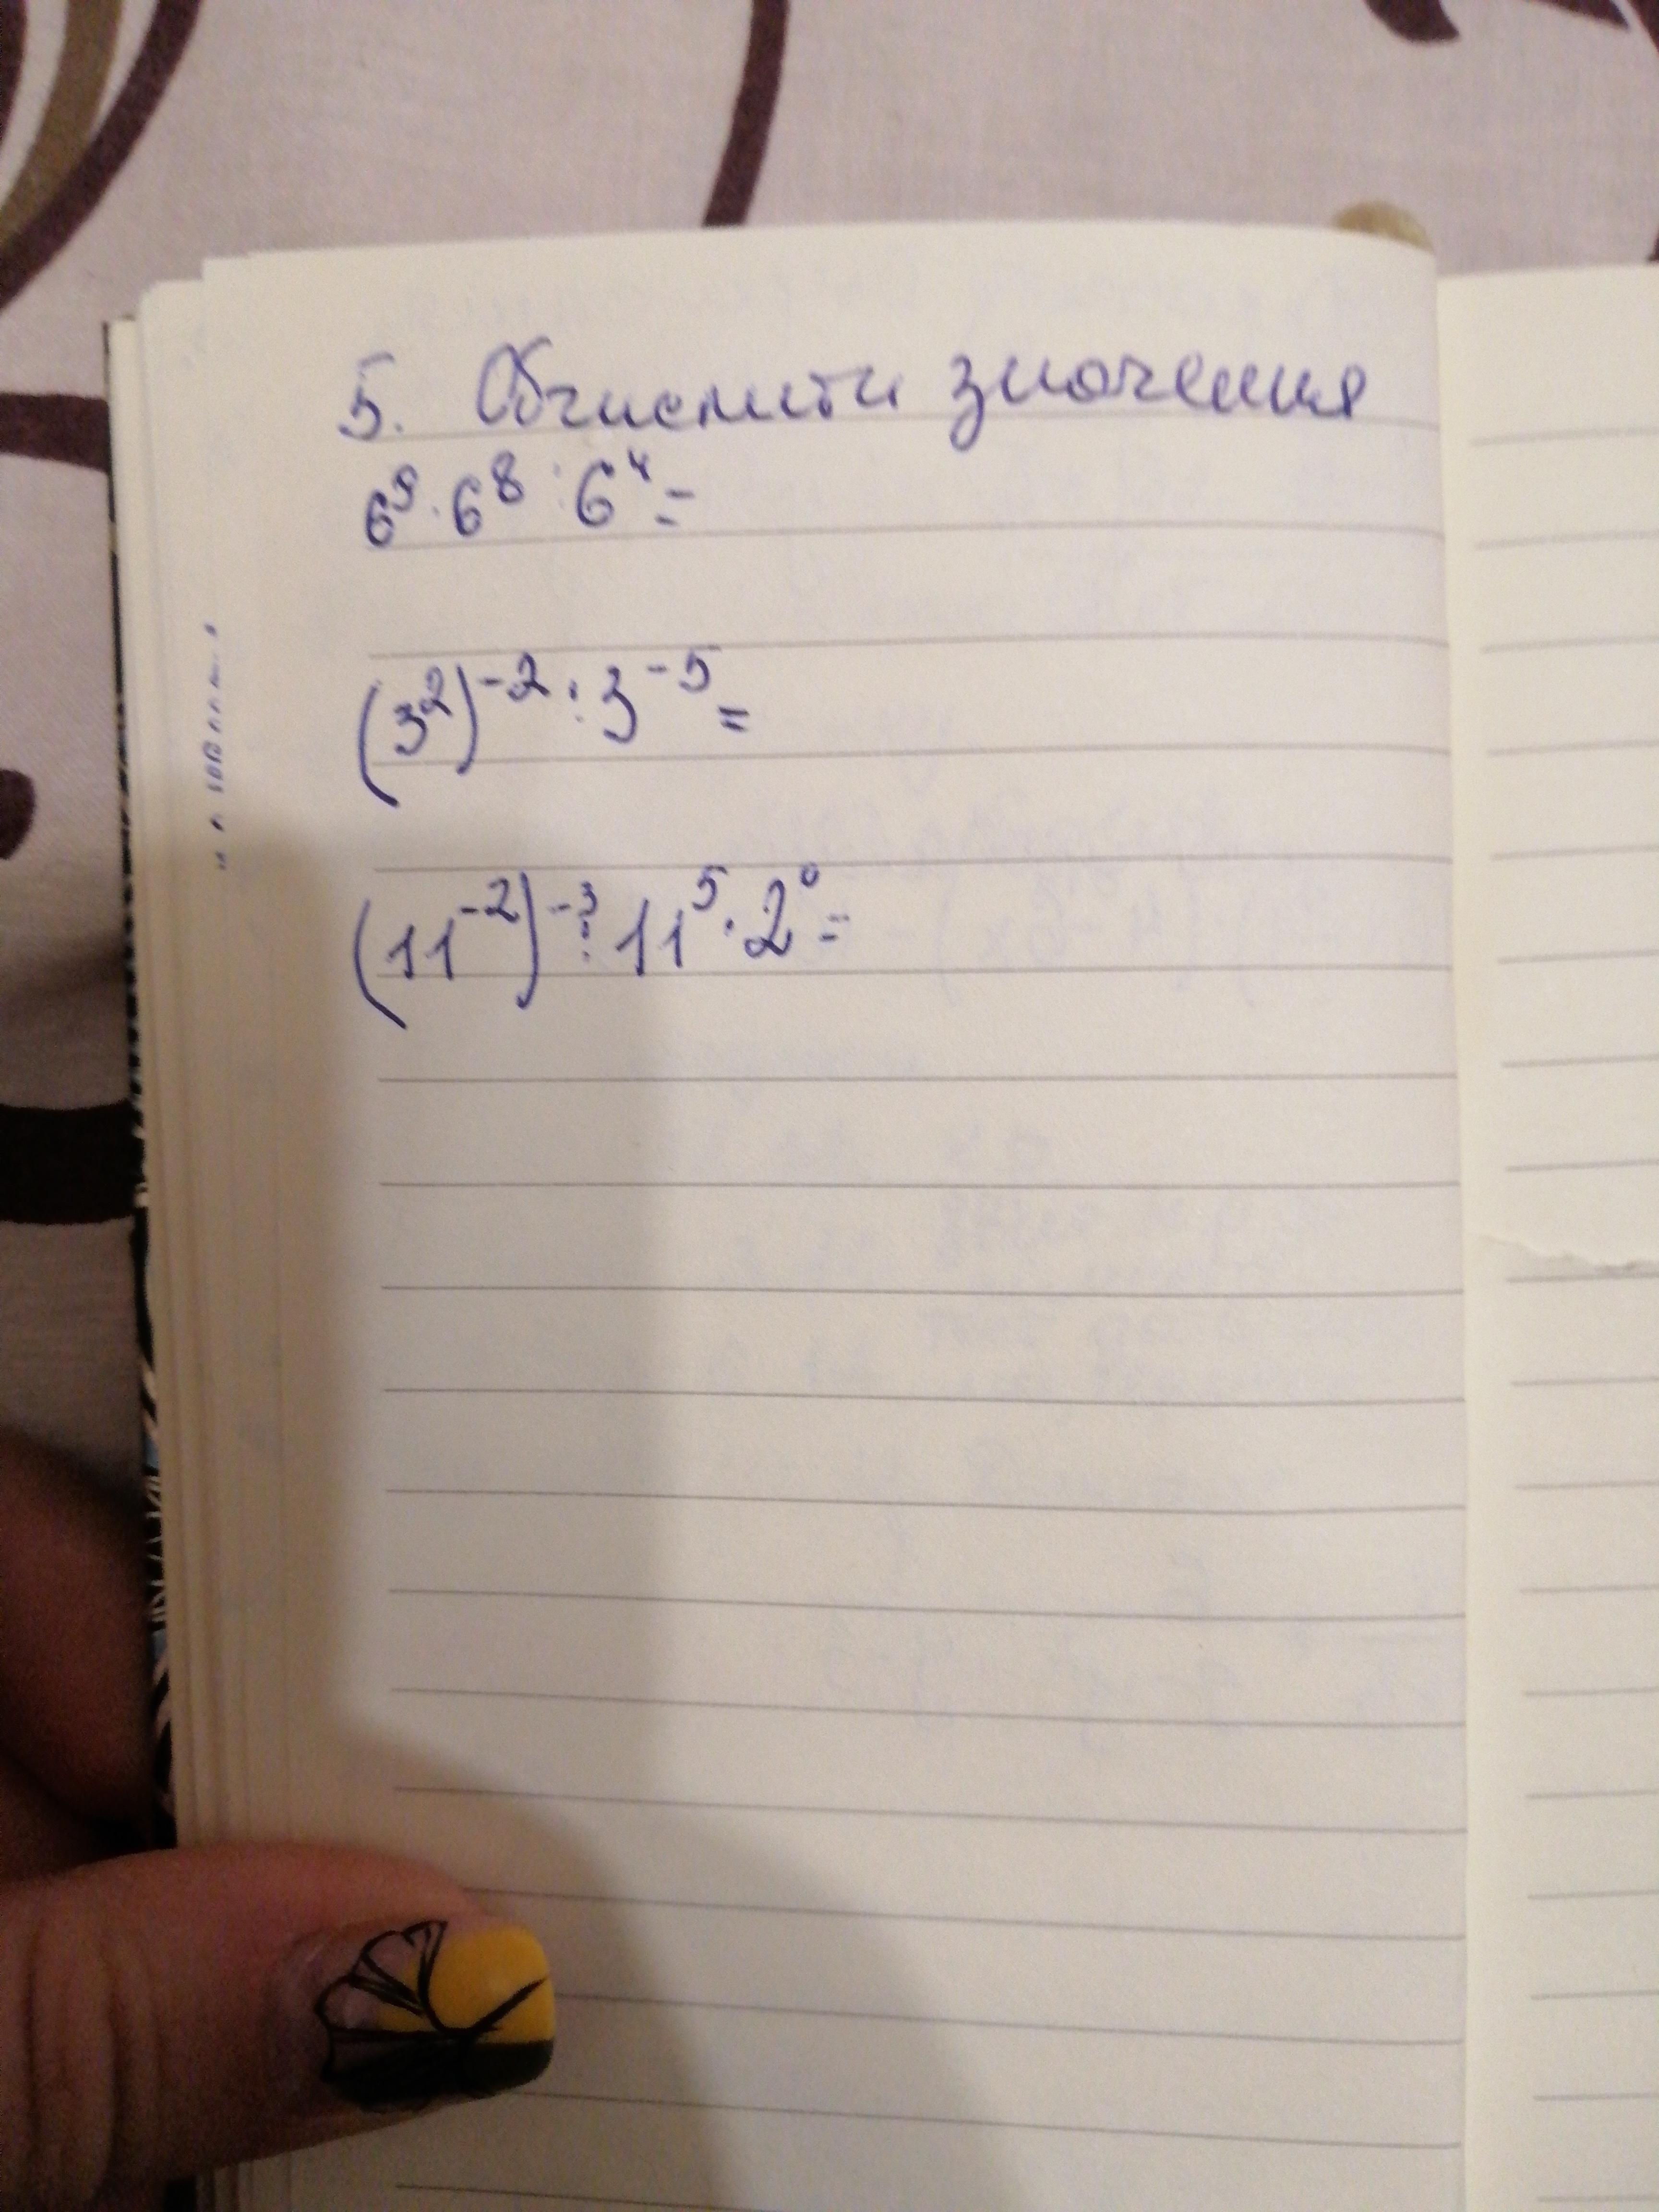 5. Обчислити значення
6⁹ · 6⁸ : 6⁴ =
(3²)⁻² : 3⁻⁵ =
(11⁻²)⁻³ : 11⁵ · 2⁰ =